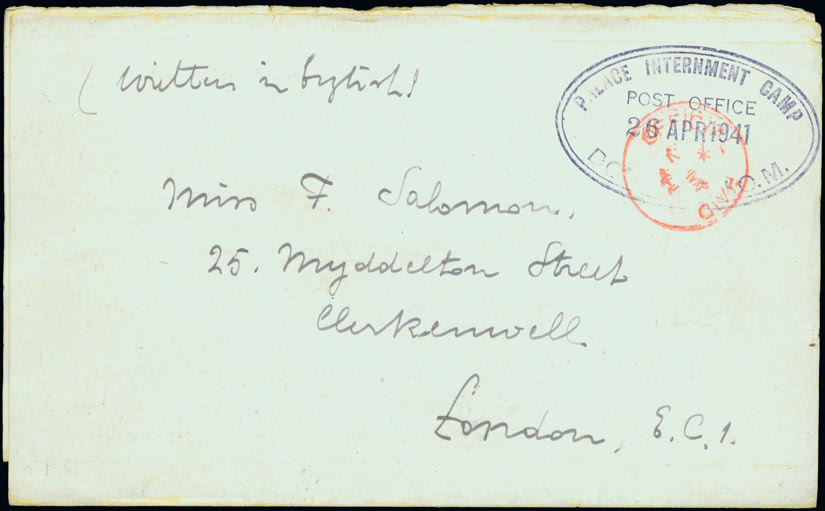 ( Written in English!
PALACE INTERNMENT CAMP
POST OFFICE
26 APR 1941
I.O.M.
OFFICIAL
PAID
Miss F. Salomon,
25. Myddelton Street
Clerkenwell
London, E.C.1.